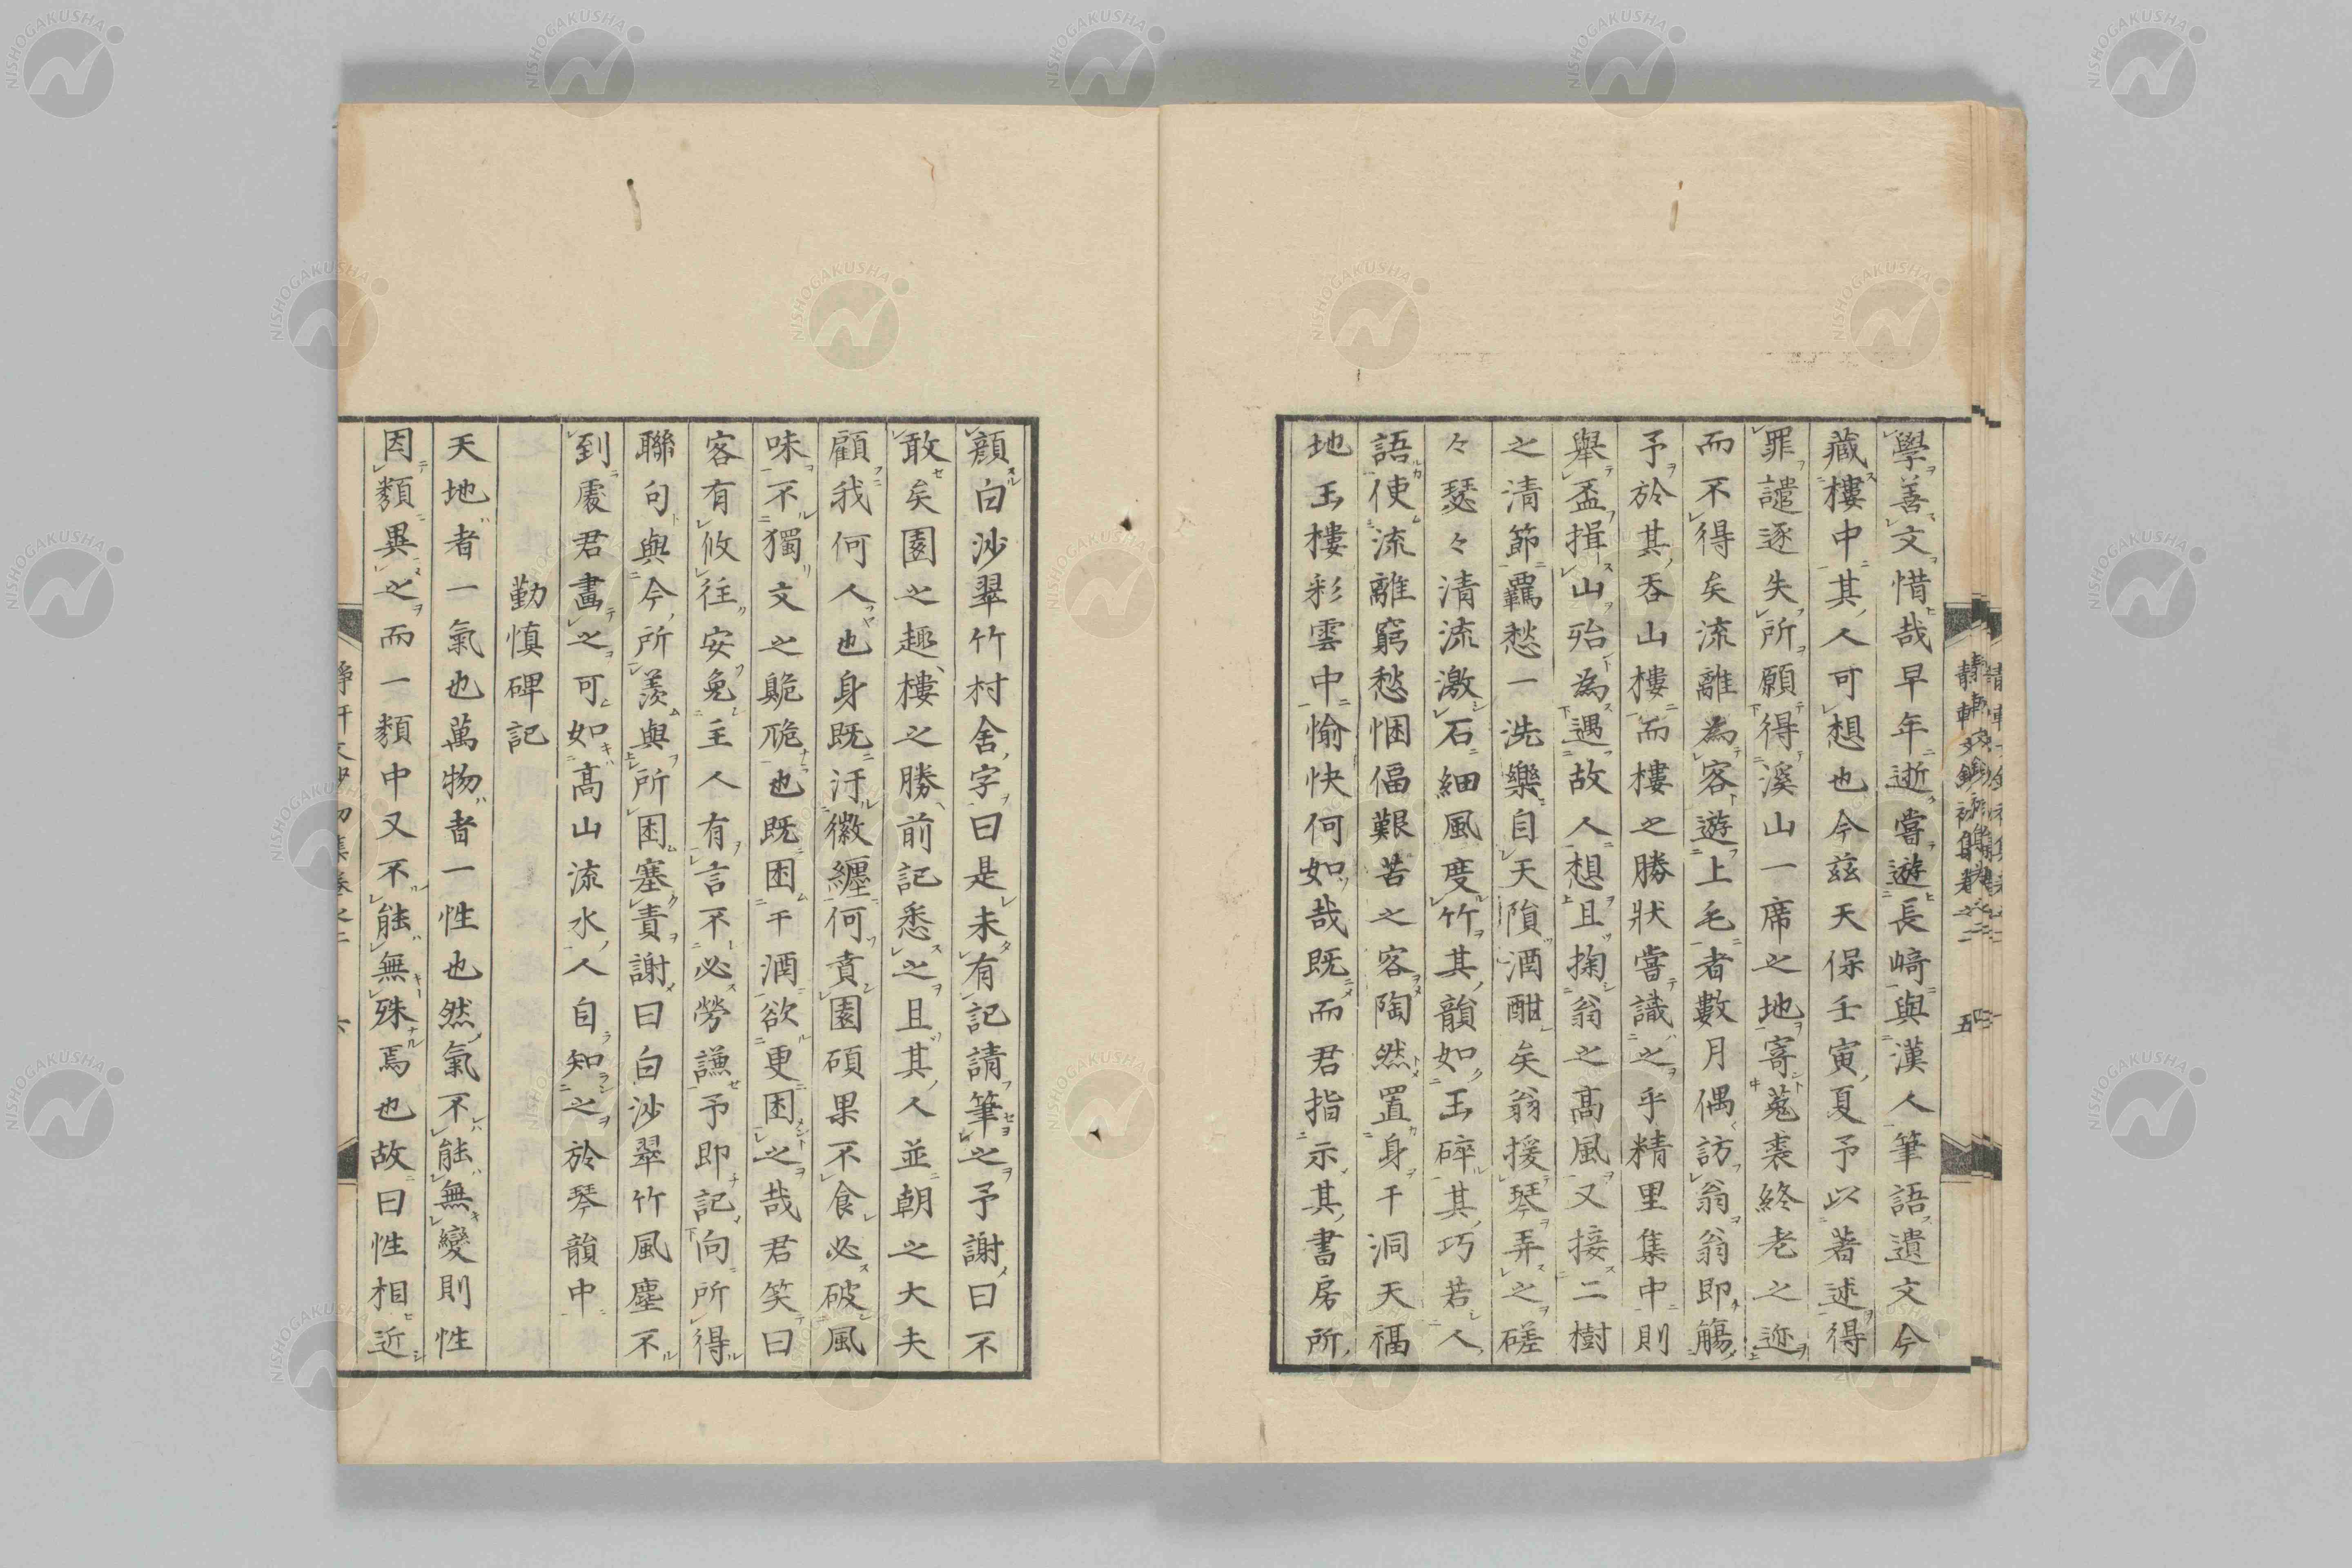 學善文惜哉早年逝嘗遊長﨑與漢人筆語遺文今
藏樓中其人可想也今茲天保壬寅夏予以著述得
罪譴逐失所願得溪山一席之地寄菟裘終老之迹
而不得矣流離為客遊上毛者數月偶訪翁翁即觴
予於其吞山樓而樓之勝狀嘗識之乎精里集中則
舉盃揖山殆為遇故人想且掬翁之高風又接二樹
之清節羈愁一洗樂自天隕酒酣矣翁援琴弄之磋
々瑟々清流激石細風度竹其韻如玉碎其巧若人
語使流離窮愁悃偪艱苦之客陶然置身于洞天福
地玉樓彩雲中愉快何如哉既而君指示其書房所
顏白沙翠竹村舍字曰是未有記請筆之予謝曰不
敢矣園之趣樓之勝前記悉之且其人並朝之大夫
顧我何人也身既汙徽纆何賁園碩果不食必破風
味不獨文之臲卼也既困于酒欲更困之哉君笑曰
客有攸往安免主人有言不必勞謙予即記向所得
聯句與今所羨與所困塞責謝曰白沙翠竹風塵不
到處君畫之可如高山流水人自知之於琴韻中
勤慎碑記
天地者一氣也萬物者一性也然氣不能無變則性
因類異之而一類中又不能無殊焉也故曰性相近